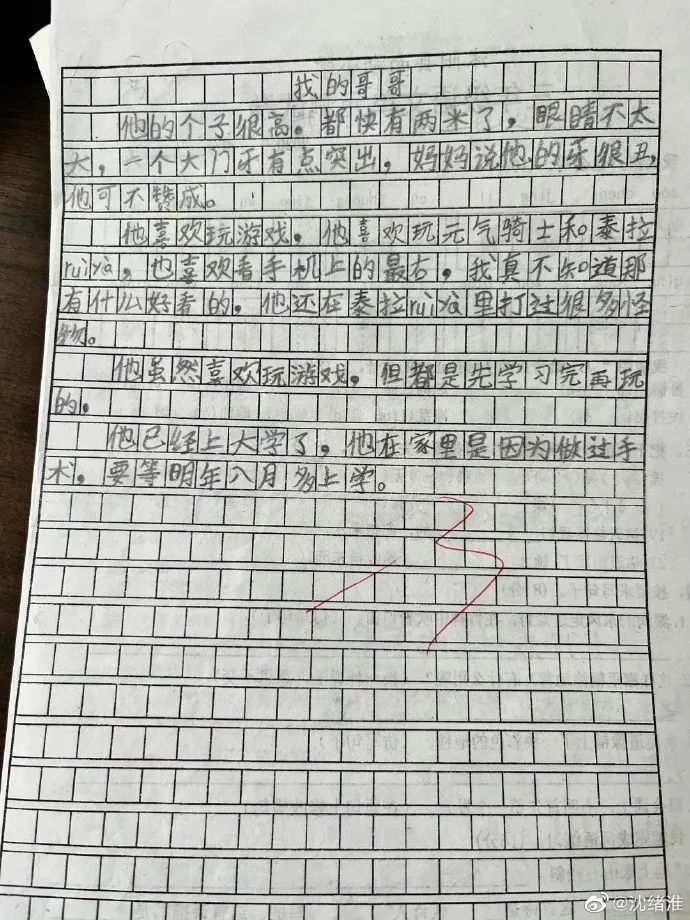 我的哥哥
他的个子很高。都快有两米了，眼睛不太
大，一个大门牙有点突出，妈妈说他的牙很丑，
他可不赞成。
他喜欢玩游戏，他喜欢玩元气骑士和泰拉
ruìyà，也喜欢看手机上的最右，我真不知道那
有什么好看的。他还在泰拉ruìyà里打过很多怪
物。
他虽然喜欢玩游戏，但都是先学习完再玩
的，
他已经上大学了，他在家里是因为做过手
术，要等明年八月多上学。
-3
@沈绪淮